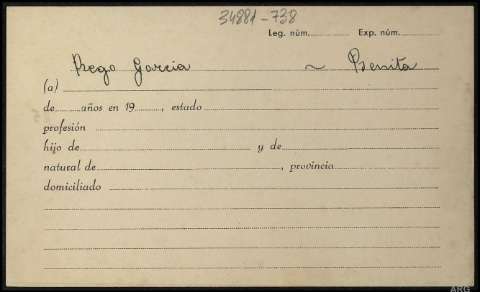 34881-738
Leg. núm. Exp. núm.
Rego García ~ Benita
(a)
de años en 19 , estado
profesión
hijo de y de
natural de , provincia
domiciliado
ARG